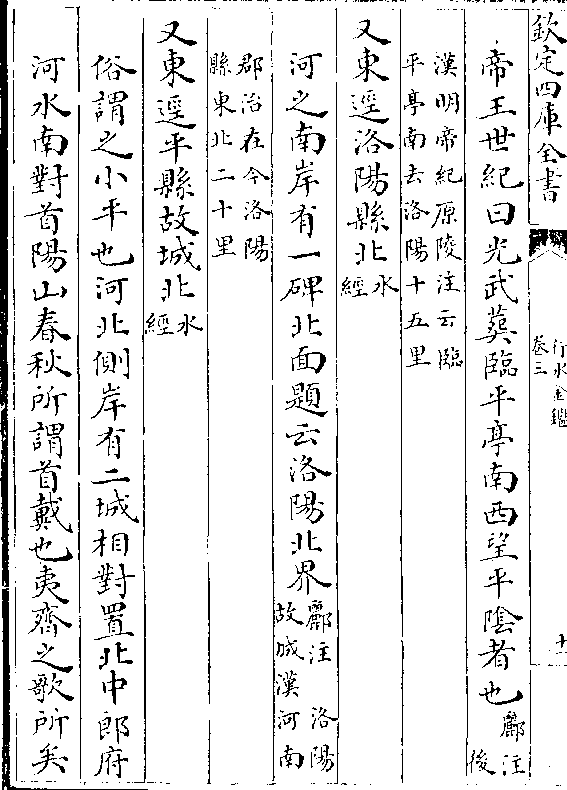 欽定四庫全書
行水金鑑
卷三
十一
帝王世紀曰光武葬臨平亭南西望平陰者也
酈注
後
漢明帝紀原陵注云臨
平亭南去洛陽十五里
又東逕洛陽縣北
水
經
河之南岸有一碑北面題云洛陽北界
酈注 洛陽
故城漢河南
郡治在今洛陽
縣東北二十里
又東逕平縣故城北
水
經
俗謂之小平也河北側岸有二城相對置北中郎府
河水南對首陽山春秋所謂首戴也夷齊之歌所矣